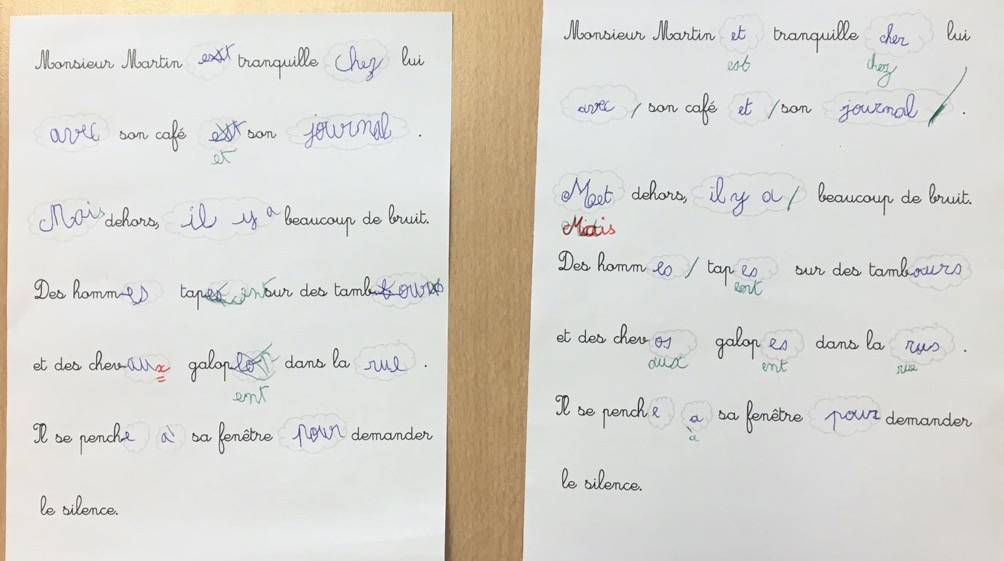 Monsieur Martin est tranquille chez lui
avec son café est son journal .
et
Mais dehors, il y a beaucoup de bruit.
Des hommes tapes ent sur des tambours
et des chevaux galop dans la rue .
ent
Il se penche à sa fenêtre pour demander
le silence.
Monsieur Martin et tranquille cher lui
est chez
avec / son café et / son journal / .
Meet dehors, il y a / beaucoup de bruit.
Mais
Des hommes / tapes sur des tambours
ent
et des chevos galopes dans la rus .
aux ent rue
Il se penche a sa fenêtre pour demander
à
le silence.